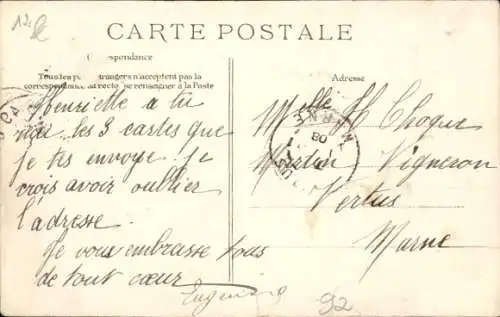 12
CARTE POSTALE
Correspondance
Tous les pays étrangers n'acceptent pas la
correspondance au recto, se renseigner à la Poste
Adresse
Henriette a tu
les 3 cartes que
je t'es envoyé. je
crois avoir oublier
l'adresse.
Je vous embrasse tous
de tout cœur
Melle H Choque
Vigneron
Vertus
Marne
92
MARNE
08